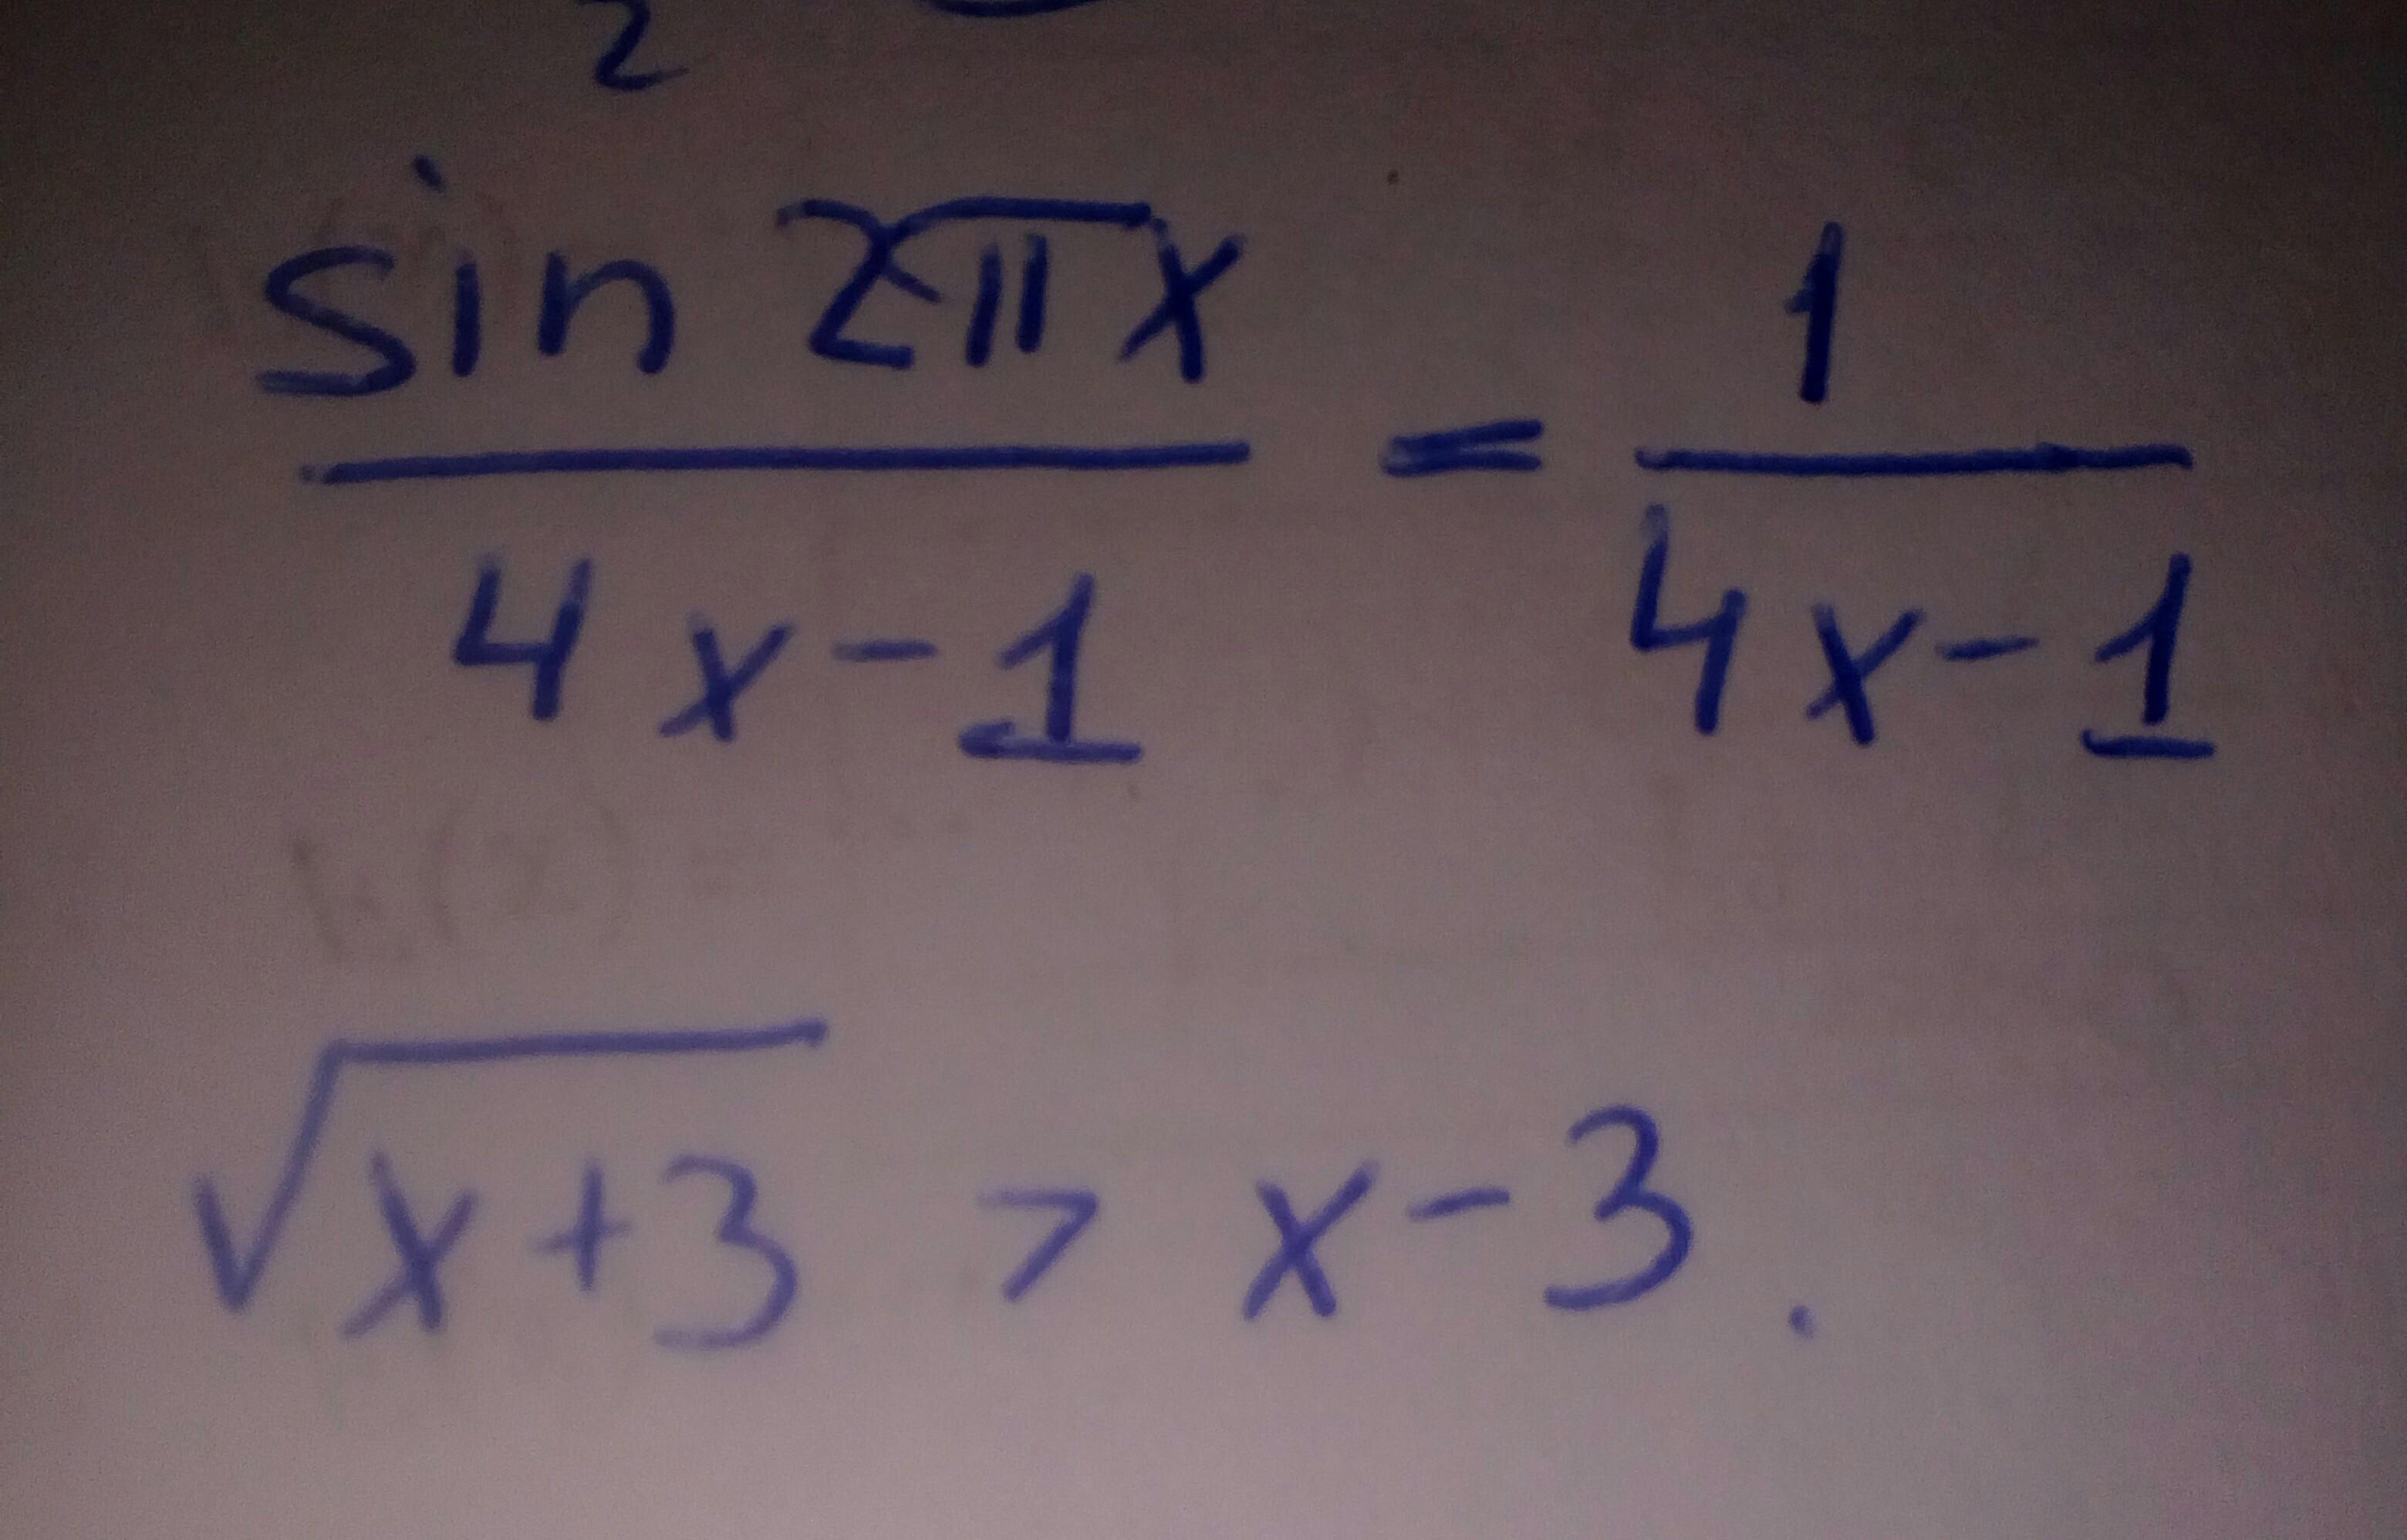 2
sin 2πx / 4x-1 = 1 / 4x-1
√x+3 > x-3.